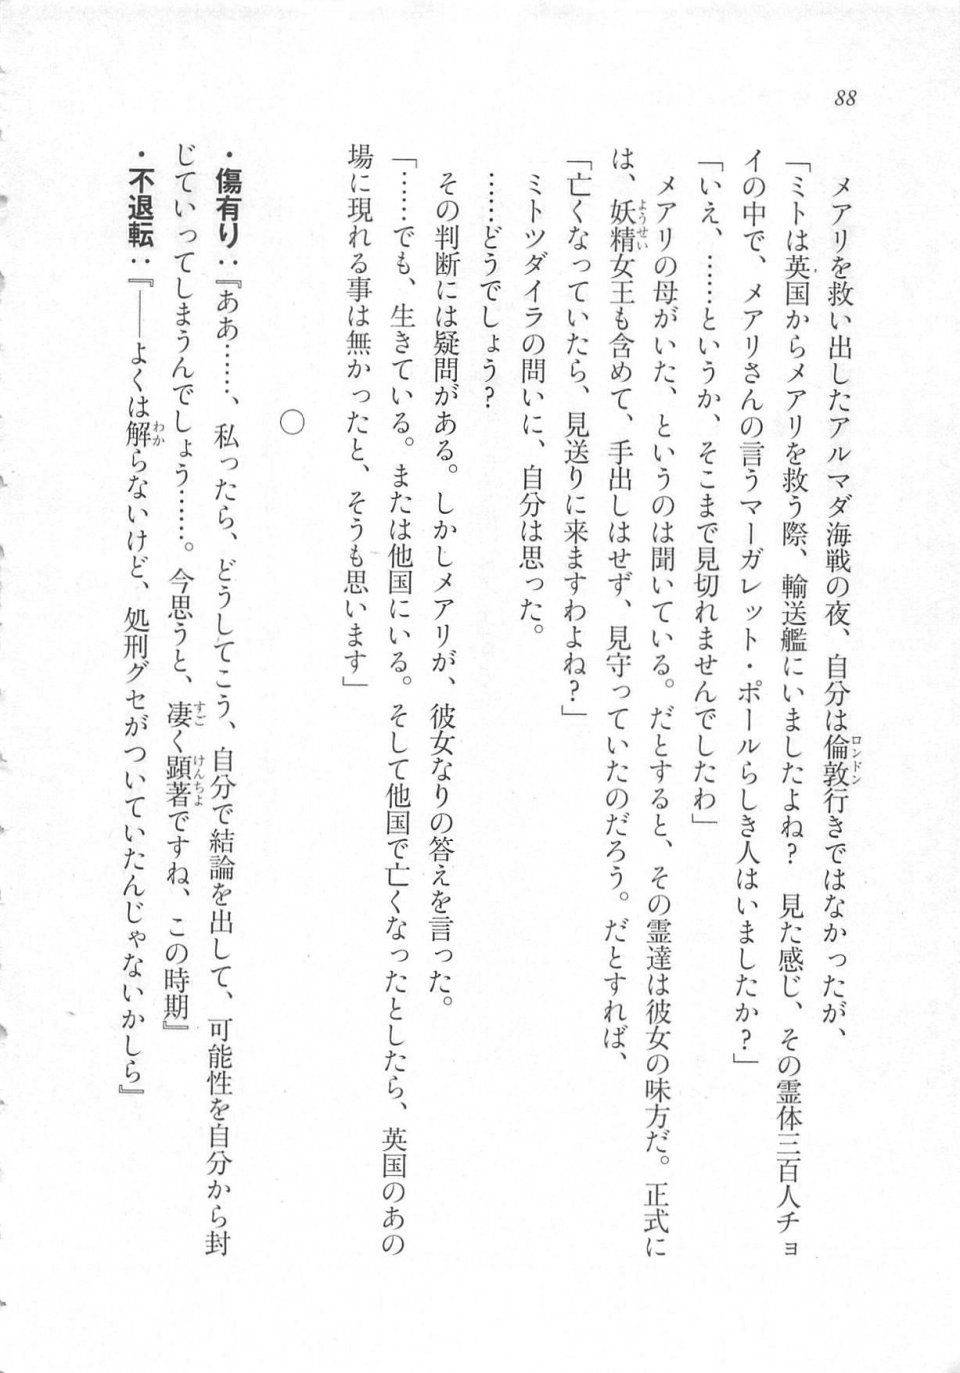 88
メアリを救い出したアルマダ海戦の夜、自分は倫敦行きではなかったが、
「ミトは英国からメアリを救う際、輸送艦にいましたよね？　見た感じ、その霊体三百人チョ
イの中で、メアリさんの言うマーガレット・ポールらしき人はいましたか？」
「いえ、……というか、そこまで見切れませんでしたわ」
メアリの母がいた、というのは聞いている。だとすると、その霊達は彼女の味方だ。正式に
は、妖精女王も含めて、手出しはせず、見守っていたのだろう。だとすれば、
「亡くなっていたら、見送りに来ますわよね？」
ミトツダイラの問いに、自分は思った。
……どうでしょう？
その判断には疑問がある。しかしメアリが、彼女なりの答えを言った。
「……でも、生きている。または他国にいる。そして他国で亡くなったとしたら、英国のあの
場に現れる事は無かったと、そうも思います」
○
・傷有り：『ああ……、私ったら、どうしてこう、自分で結論を出して、可能性を自分から封
じていってしまうんでしょう……。今思うと、凄く顕著ですね、この時期』
・不退転：『――よくは解らないけど、処刑グセがついていたんじゃないかしら』